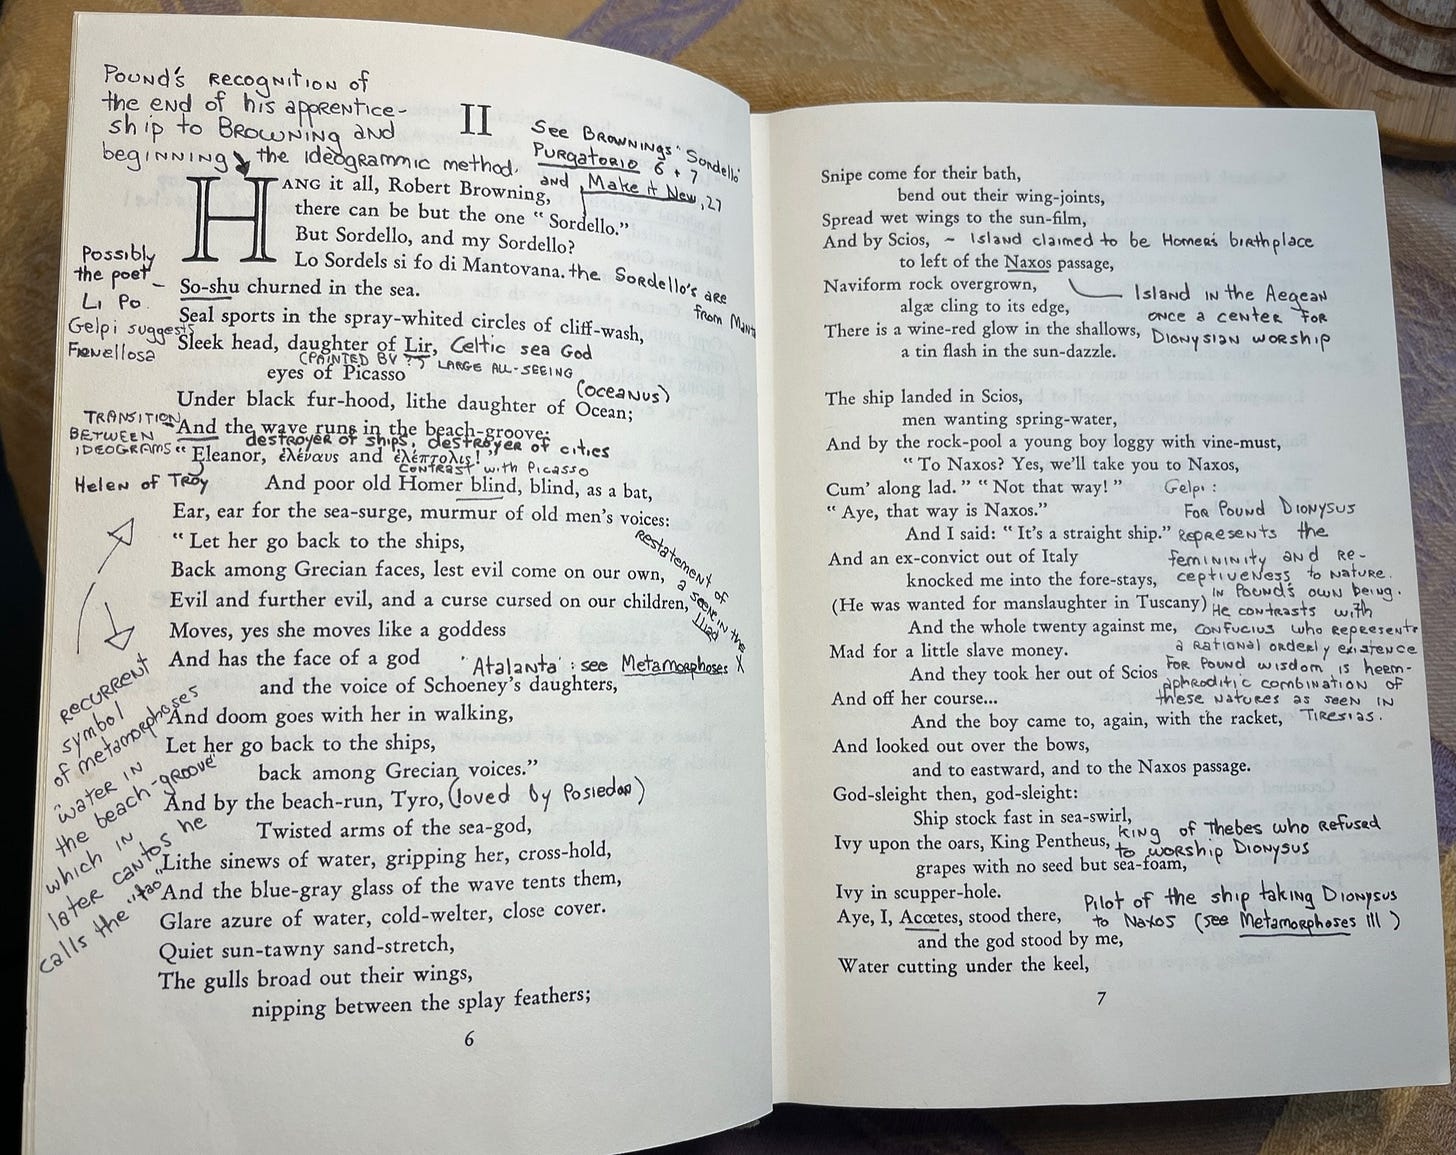 Pound's recognition of
the end of his apprentice-
ship to Browning and
beginning the ideogrammic method.
II
See Brownings' Sordello
Purgatorio 6 + 7
and Make it New, 27
HANG it all, Robert Browning,
there can be but the one “ Sordello.”
But Sordello, and my Sordello?
Lo Sordels si fo di Mantovana. the Sordello's are
from Mant
Possibly
the poet –
Li Po.
Gelpi suggests
Fienellosa
So-shu churned in the sea.
Seal sports in the spray-whited circles of cliff-wash,
Sleek head, daughter of Lir, Celtic sea God
(PAINTED BY ??) LARGE ALL-SEEING
eyes of Picasso
(Oceanus)
Under black fur-hood, lithe daughter of Ocean;
TRANSITION
BETWEEN
IDEOGRAMS
And the wave runs in the beach-groove:
destroyer of ships, destroyer of cities
“ Eleanor, ἑλέναυς and ἑλέπτολις! ”
contrast with Picasso
Helen of Troy
And poor old Homer blind, blind, as a bat,
Ear, ear for the sea-surge, murmur of old men's voices:
“ Let her go back to the ships,
Back among Grecian faces, lest evil come on our own,
Evil and further evil, and a curse cursed on our children,
Restatement of
a scene in the
Iliad
Moves, yes she moves like a goddess
And has the face of a god
'Atalanta' : see Metamorphoses X
and the voice of Schoeney's daughters,
And doom goes with her in walking,
Let her go back to the ships,
back among Grecian voices.”
And by the beach-run, Tyro, (loved by Posiedon)
Twisted arms of the sea-god,
Lithe sinews of water, gripping her, cross-hold,
And the blue-gray glass of the wave tents them,
Glare azure of water, cold-welter, close cover.
Quiet sun-tawny sand-stretch,
The gulls broad out their wings,
nipping between the splay feathers;
recurrent
symbol
of metamorphoses
"water in
the beach-groove"
which in
later cantos he
calls the "tao"
6
Snipe come for their bath,
bend out their wing-joints,
Spread wet wings to the sun-film,
And by Scios, ~ Island claimed to be Homer's birthplace
to left of the Naxos passage,
Naviform rock overgrown,
algæ cling to its edge,
Island in the Aegean
once a center for
Dionysian worship
There is a wine-red glow in the shallows,
a tin flash in the sun-dazzle.
The ship landed in Scios,
men wanting spring-water,
And by the rock-pool a young boy loggy with vine-must,
“ To Naxos? Yes, we'll take you to Naxos,
Cum' along lad.” “ Not that way! ”
“ Aye, that way is Naxos.”
And I said: “ It's a straight ship.”
And an ex-convict out of Italy
knocked me into the fore-stays,
(He was wanted for manslaughter in Tuscany)
And the whole twenty against me,
Mad for a little slave money.
And they took her out of Scios
And off her course...
Gelpi :
For Pound Dionysus
represents the
femininity and re-
ceptiveness to nature.
in Pound's own being.
He contrasts with
Confucius who represents
a rational orderly existence
For Pound wisdom is heem-
aphroditic combination of
these natures as seen in
Tiresias.
And the boy came to, again, with the racket,
And looked out over the bows,
and to eastward, and to the Naxos passage.
God-sleight then, god-sleight:
Ship stock fast in sea-swirl,
Ivy upon the oars, King Pentheus, King of Thebes who refused
to worship Dionysus
grapes with no seed but sea-foam,
Ivy in scupper-hole.
Aye, I, Acœtes, stood there,
Pilot of the ship taking Dionysus
to Naxos (see Metamorphoses III )
and the god stood by me,
Water cutting under the keel,
7